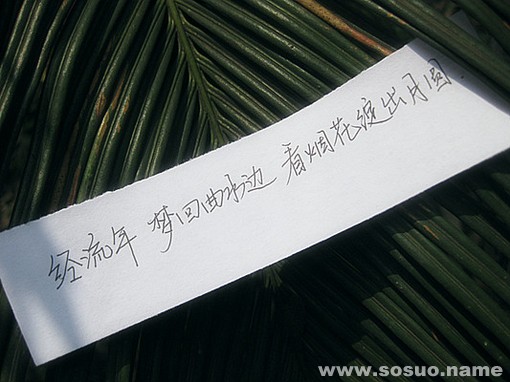 经流年 梦回曲水边 看烟花绽出月圆.
www.sosuo.name